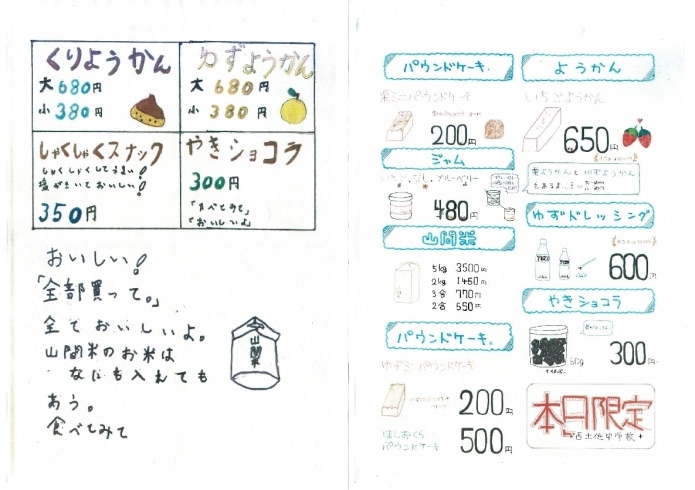 くりようかん
大 680円
小 380円
ゆずようかん
大 680円
小 380円
しゃくしゃくスナック
しゃくしゃくしてうまい!
塩がきいておいしい!
350円
やきショコラ
300円
「たべてみて」
「おいしいよ」
おいしい!
「全部買って。」
全ておいしいよ。
山間米のお米は
なにも入れても
あう。
食べてみて
山間米
パウンドケーキ。
栗ミニパウンドケーキ
200円
ジャム
いちご、なし、ブルーベリー
480円
山間米
5kg 3500円
2kg 1450円
3合 770円
2合 550円
パウンドケーキ。
ゆずミニパウンドケーキ
200円
パウンドケーキ
500円
ようかん
いちごようかん
650円
栗ようかんとゆずようかん
もあるよ
ゆずドレッシング
600円
やきショコラ
50g
300円
本日限定
西土佐中学校